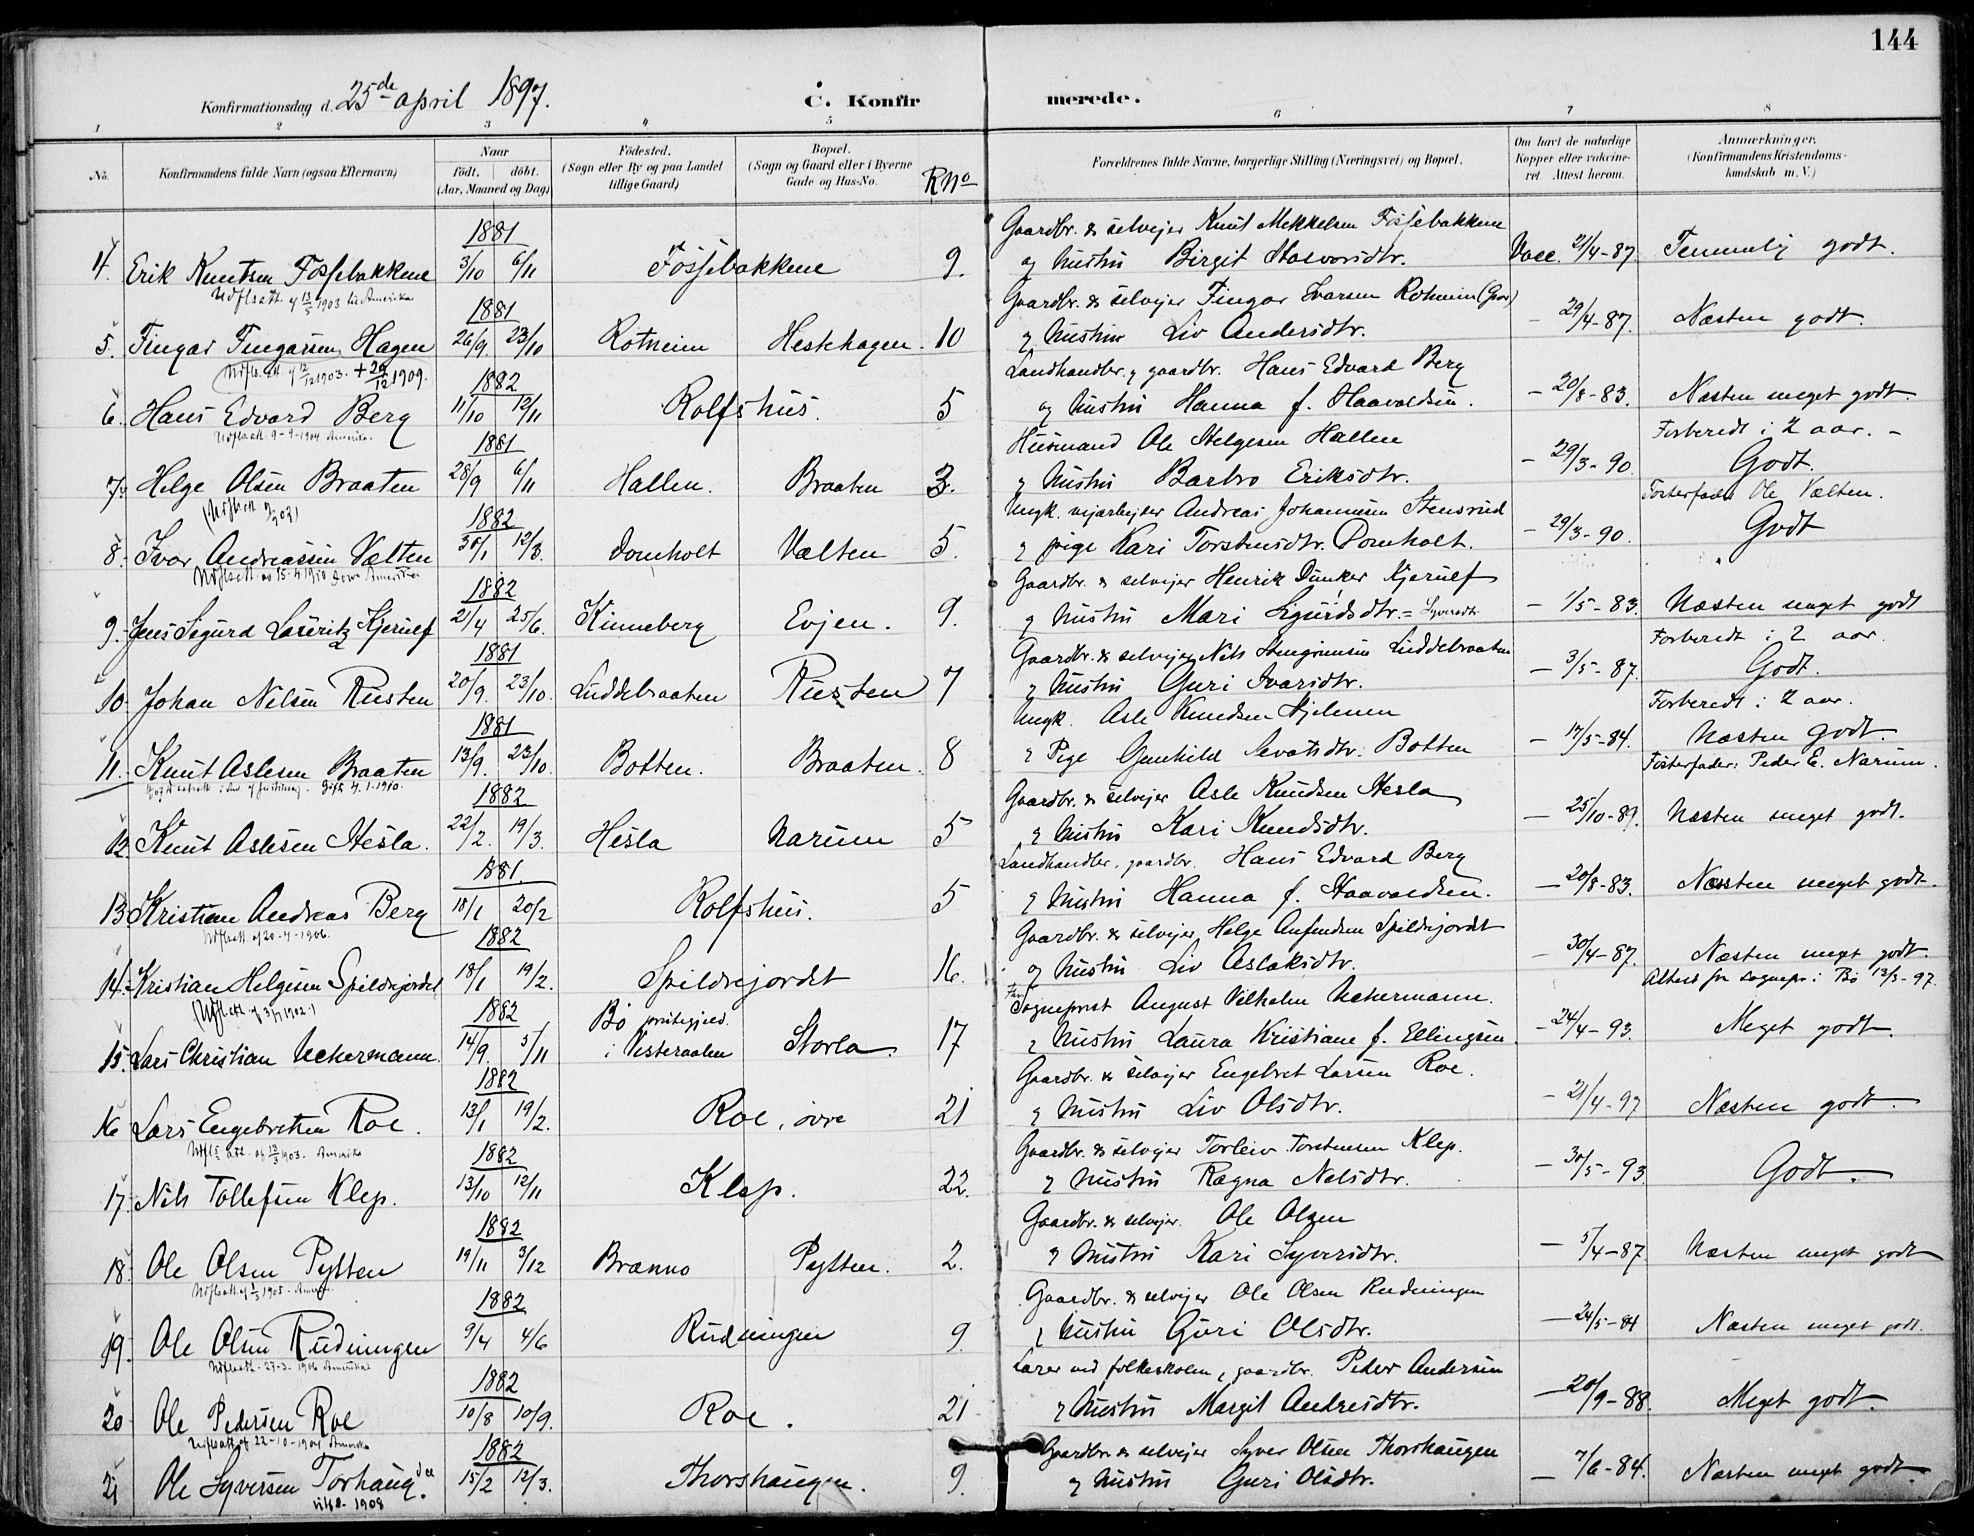 144
Konfirmationsdag d. 25de april 1897.
C. Konfirmerede.
1 2 3 4 5 6 7 8
No.
Konfirmandens fulde Navn (ogsaa Efternavn)
Naar
født. døbt.
(Aar, Maaned og Dag)
Fødested.
(Sogn eller By og paa Landet
tillige Gaard)
Bopæl.
(Sogn og Gaard eller i Byerne
Gade og Hus-No.
RNo
Forældrenes fulde Navne, borgerlige Stilling (Næringsvei) og Bopæl.
Om havt de naturlige
Kopper eller vakcine-
ret Attest herom.
Anmærkninger.
(Konfirmandens Kristendoms-
kundskab m. V.)
1881
Gaardbr. & selvejer Knut Mekkelsen Fossebakkene
4. Erik Knutsen Fossebakkene 3/10 6/11 Fossebakkene 9. og hustru Birgit Halvorsdtr. Vacc. 21/4-87 Temmelig godt.
Udfl.att. 13/5 1903 til Amerika
1881
Gaardbr. & selvejer Fingar Ivarsen Rotneim
5. Fingar Fingarsen Hagen 26/9 23/10 Rotneim Hestehagen 10 & hustru Liv Andersdtr. - 29/4-87. Næsten godt.
1903. + 29/12 1909.
1882
Landhandler & gaardbr. Hans Edvard Berg
6. Hans Edvard Berg 11/10 12/11 Rolfshus. 5 og hustru Hanna f. Haavaldsen. - 20/8-83. Næsten meget godt.
Udfl.att. 9-9-1904 Amerika.
Forberedt i 2 aar. -
1881
Husmand Ole Helgesen Hallen
7. Helge Olsen Braaten 28/9 6/11 Hallen. Braaten 3. & hustru Barbro Eriksdtr. - 29/3-90. Godt.
Fosterfader Ole Vælten.
1882
Ungk. vejarbejder Andreas Johannesen Stensrud
8. Ivar Andreassen Vælten 30/1 12/3. Domholt Vælten 5. & pige Kari Torstensdtr. Domholt. - 29/3-90. Godt
Udfl.att. 15-4-1910 Amerika
1882
Gaardbr. & selvejer Henrik Dunker Kjerulf
9. Jens Sigurd Lauritz Kjerulf 21/4 25/6. Kinneberg Evjen. 9. & hustru Mari Sigurdsdtr. = Syversdtr. - 1/5-83. Næsten meget godt
Forberedt i 2 aar.
1881
Gaardbr. & selvejer Nils Stengrimsen Luddebraaten
10. Johan Nilsen Rusten 20/9. 23/10. Luddebraaten Rusten 7 & hustru Guri Ivarsdtr. - 3/5-87. Godt.
Forberedt i 2 aar.
1881
Ungk. Asle Knudsen Hjelmen
11. Knut Aslesen Braaten 13/9. 23/10. Botten. Braaten. 8 & Pige Gunhild Sevatsdtr. Botten - 17/5-84. Næsten godt.
Gift 4.1-1910.
Fosterfader: Peder E. Narum.
1882
Gaardbr. & selvejer Asle Knudsen Hesla
12. Knut Aslesen Hesla. 22/2. 19/3. Hesla Narum 5 & hustru Kari Knudsdtr. - 25/10-89. Næsten meget godt.
1881.
Landhandler, gaardbr. Hans Edvard Berg
13 Kristian Andreas Berg 18/1 20/2 Rolfshus. 5 & hustru Hanna f. Haavaldsen. - 20/8-83. Næsten meget godt.
Udfl.att. 20-4-1906.
1882
Gaardbr. & selvejer Helge Anfindsen Spildrejordet
14. Kristian Helgesen Spildrejordet 18/1 19/2. Spildrejordet 16. og hustru Liv Aslaksdtr. - 30/4-87. Næsten meget godt.
Attest fra sognepr. i Bø 13/3-97.
1882
Bø prestegjeld.
Sogneprest August Vilhelm Uchermann.
15. Lars Christian Uchermann 14/9. 5/11 i Vesteraalen Storla. 17 & hustru Laura Kristiane f. Ellingsen - 24/4-93. Meget godt.
1882
Gaardbr. & selvejer Engebret Larsen Roe.
16 Lars Engebretsen Roe. 13/1 19/2. Roe, øvre 21 & hustru Liv Olsdtr. - 21/4-97 Næsten godt.
Udfl. att. af 13/3 1903. Amerika
1882
Gaardbr. & selvejer Torleiv Torstensen Klep.
17. Nils Tollefsen Klep. 13/10 12/11 Klep. 22. & hustru Ragna Nelsdtr. - 30/5-93 Godt.
1882
Gaardbr. & selvejer. Ole Olsen
18. Ole Olsen Pytten 19/11 3/12 Brænno Pytten. 2. & hustru Kari Syversdtr. - 5/4-87. Næsten meget godt
1882
Gaardbr. & selvejer Ole Olsen Rudningen
19. Ole Olsen Rudningen 9/4 4/6 Rudningen 9. & hustru Guri Olsdtr. - 24/5-84 Næsten meget godt.
Udfl.att. 27-3-1906 Amerika
1882
Lærer ved folkeskolen, gaardbr. Peder Andersen
20 Ole Pedersen Roe 10/8 10/9. Roe. 21 & hustru Margit Andresdtr. - 20/9-88. Meget godt.
Udfl.att. af 22-10-1904 Amerika
1882
Gaardbr. & selvejer Syver Olsen Thorshaugen
21 Ole Syversen Torhaug. 15/2 12/3. Thorshaugen. 9. & hustru Guri Olsdtr. - 7/6-84. Næsten meget godt.
1908